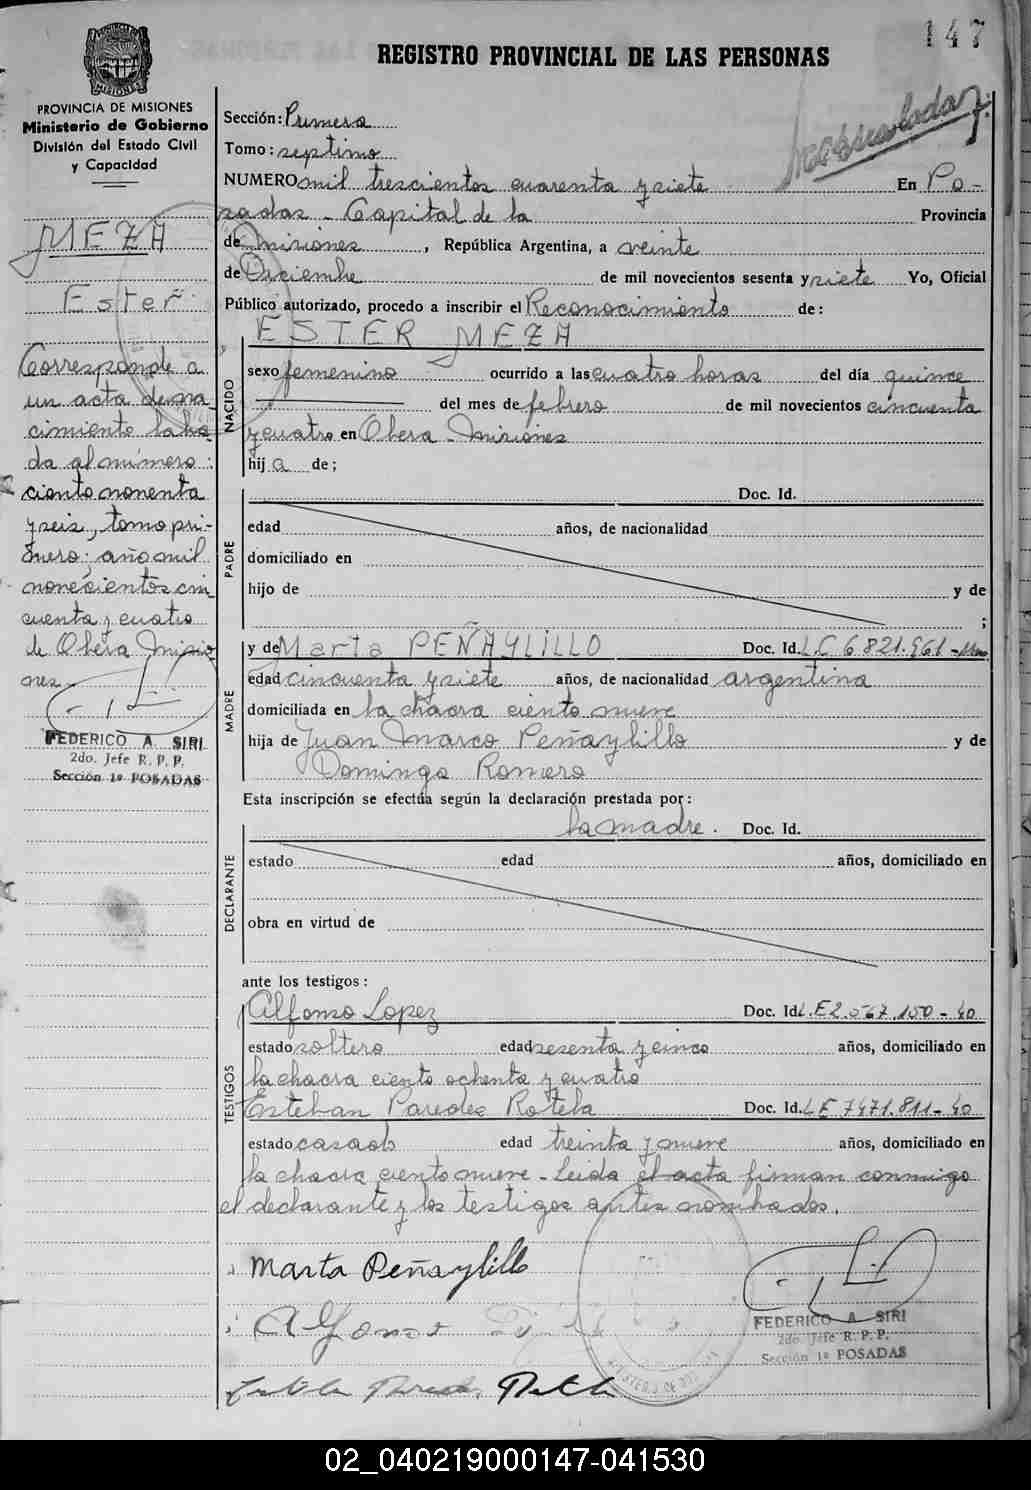 147
REGISTRO PROVINCIAL DE LAS PERSONAS
PROVINCIA DE MISIONES
Ministerio de Gobierno
División del Estado Civil
y Capacidad
MEZA
Ester
Corresponde a
un acta de na-
cimiento labra-
da al número:
ciento noventa
y seis, tomo pri-
mero; año mil
novecientos cin
cuenta y cuatro
de Obera Misio
nes.
FEDERICO A. SIRI
2do. Jefe R. P. P.
Sección 1ª POSADAS
Sección: Primera
Tomo: septimo
NUMERO mil trescientos cuarenta y siete En Po-
sadas - Capital de la Provincia
de Misiones, República Argentina, a veinte
de Diciembre de mil novecientos sesenta y siete Yo, Oficial
Público autorizado, procedo a inscribir el Reconocimiento de:
ESTER MEZA
NACIDO
sexo femenino ocurrido a las cuatro horas del día quince
del mes de febrero de mil novecientos cincuenta
y cuatro en Obera - Misiones
hij a de;
PADRE
Doc. Id.
edad años, de nacionalidad
domiciliado en
hijo de y de
;
MADRE
y de Marta PEÑAYLILLO Doc. Id. L.C 6.821.961
edad cincuenta y siete años, de nacionalidad argentina
domiciliada en la chacra ciento nueve
hija de Juan Marco Peñaylillo y de
Dominga Romero
Esta inscripción se efectúa según la declaración prestada por:
DECLARANTE
la madre. Doc. Id.
estado edad años, domiciliado en
obra en virtud de
ante los testigos:
TESTIGOS
Alfonso Lopez Doc. Id. L.E 2.567.100-40
estado soltero edad sesenta y cinco años, domiciliado en
la chacra ciento ochenta y cuatro
Esteban Paredes Rotela Doc. Id. L E 7471.811-40
estado casado edad treinta y nueve años, domiciliado en
la chacra ciento nueve - Leida el acta firman conmigo
el declarante y los testigos antes nombrados.
Marta Peñaylillo
Alfonso
FEDERICO A. SIRI
2do. Jefe R. P. P.
Sección 1ª POSADAS
02_040219000147-041530